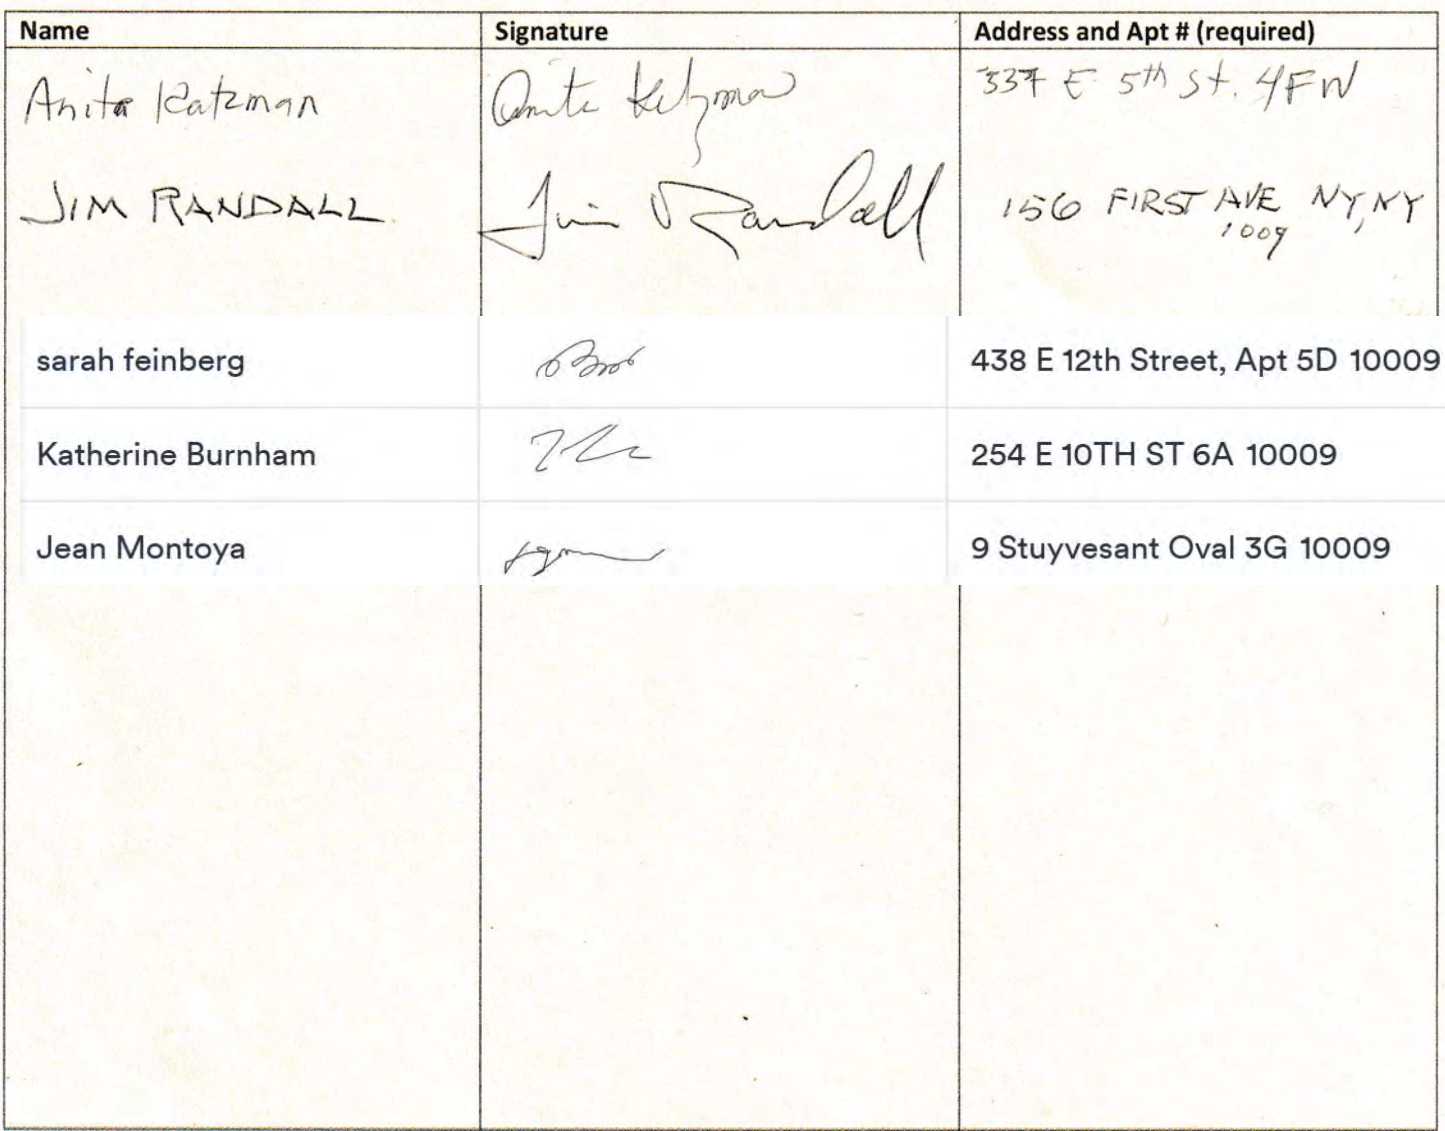 Name Signature Address and Apt # (required)
Anita Katzman Anita Katzman 337 E 5th St. 4FW
JIM RANDALL Jim Randall 156 FIRST AVE NY, NY
1009
sarah feinberg 438 E 12th Street, Apt 5D 10009
Katherine Burnham 254 E 10TH ST 6A 10009
Jean Montoya 9 Stuyvesant Oval 3G 10009